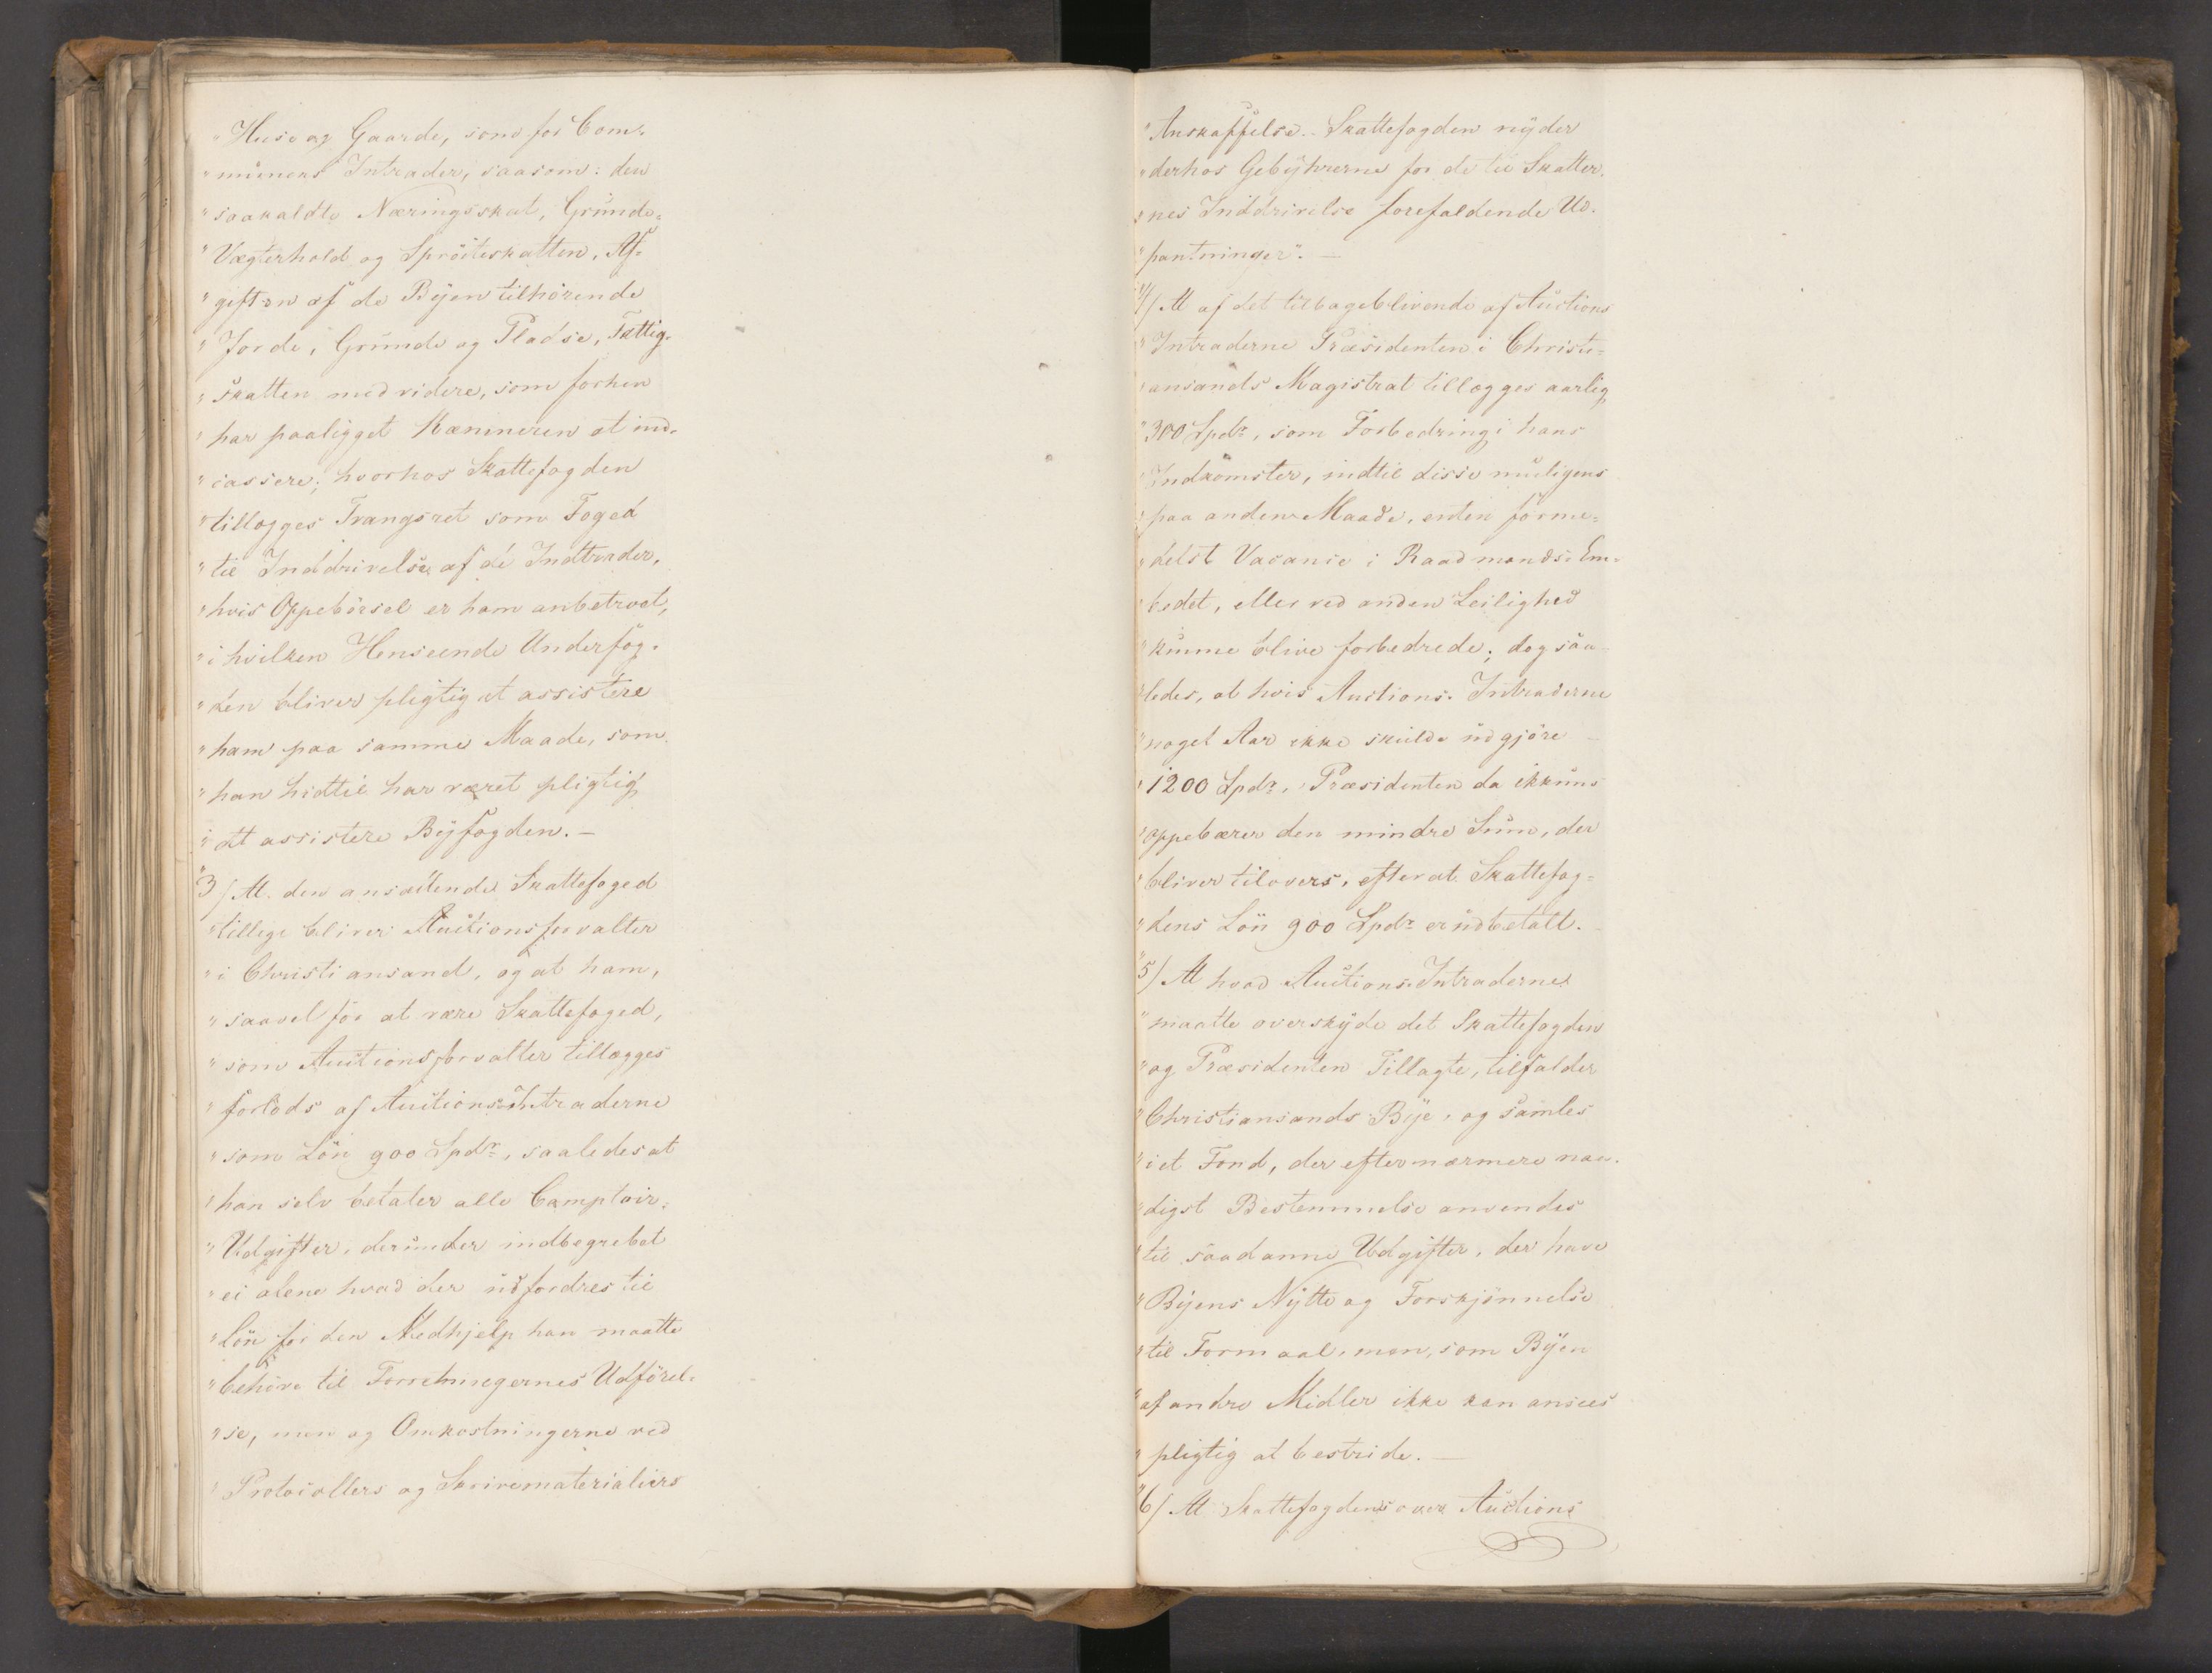 "Huse og Gaarde, som for Com-
"munens Intrader, saasom: den
"saakaldte Næringsskat, Grunde-
"Vægterhold og Sprøiteskatten, Af-
"giften af de Byen tilhørende
"Jorde, Grunde og Pladse, Fattig-
"skatten med videre, som forhen
"har paaligget Kæmneren at ind-
"cassere; hvorhos Skattefogden
"tillægges Trangsret som Foged
"til Inddrivelse af de Indtrader,
"hvis Oppebørsel er ham anbetroet,
"i hvilken Henseende Underfog-
"den bliver pligtig at assistere
"ham paa samme Maade, som
"han hidtil har været pligtig
"at assistere Byfogden. —
"3/ At den ansættende Skattefoged
"tillige bliver Auctionsforvalter
"i Christiansand, og at ham,
"saavel for at være Skattefoged,
"som Auctionsforvalter tillægges
"forlods af Auctions-Intraderne
"som Løn 900 Spdr, saaledes at
"han selv betaler alle Comptoir-
"Udgifter, derunder indbegrebet
"ei alene hvad der udfordres til
"Løn for den Medhjelp han maatte
"behøve til Forretningernes Udførel-
"se, men og Omkostningerne ved
"Protocollers og Skrivematerialiers
"Anskaffelse. Skattefogden nyder
"derhos Gebyhrerne for de til Skatter-
"nes Inddrivelse forefaldende Ud-
"pantninger". —
"4/ At af det tilbageblivende af Auctions
"Intraderne Præsidenten i Christi-
"ansands Magistrat tillægges aarlig
"300 Spdr, som Forbedring i hans
"Indkomster, indtil disse muligens
"paa anden Maade, enten forme-
"delst Vacance i Raadmands-Em-
"bedet, eller ved anden Leilighed
"kunne blive forbedrede; dog saa-
"ledes, at hvis Auctions-Intraderne
"noget Aar ikke skulde udgjøre —
"1200 Spdr, Præsidenten da ikkuns
"oppebærer den mindre Sum, der
"bliver tilovers, efterat Skattefog-
"dens Løn 900 Spdr er udbetalt.
"5/ At hvad Auctions-Intraderne
"maatte overskyde det Skattefogden
"og Præsidenten Tillagte, tilfalder
"Christiansands Bye, og samles
"i et Fond, der efter nærmere naa-
"digst Bestemmelse anvendes
"til saadanne Udgifter, der have
"Byens Nytte og Forskjønnelse
"til Formaal, men, som Byen
"af andre Midler ikke kan ansees
"pligtig at bestride. —
"6/ At Skattefogdens over Auctions